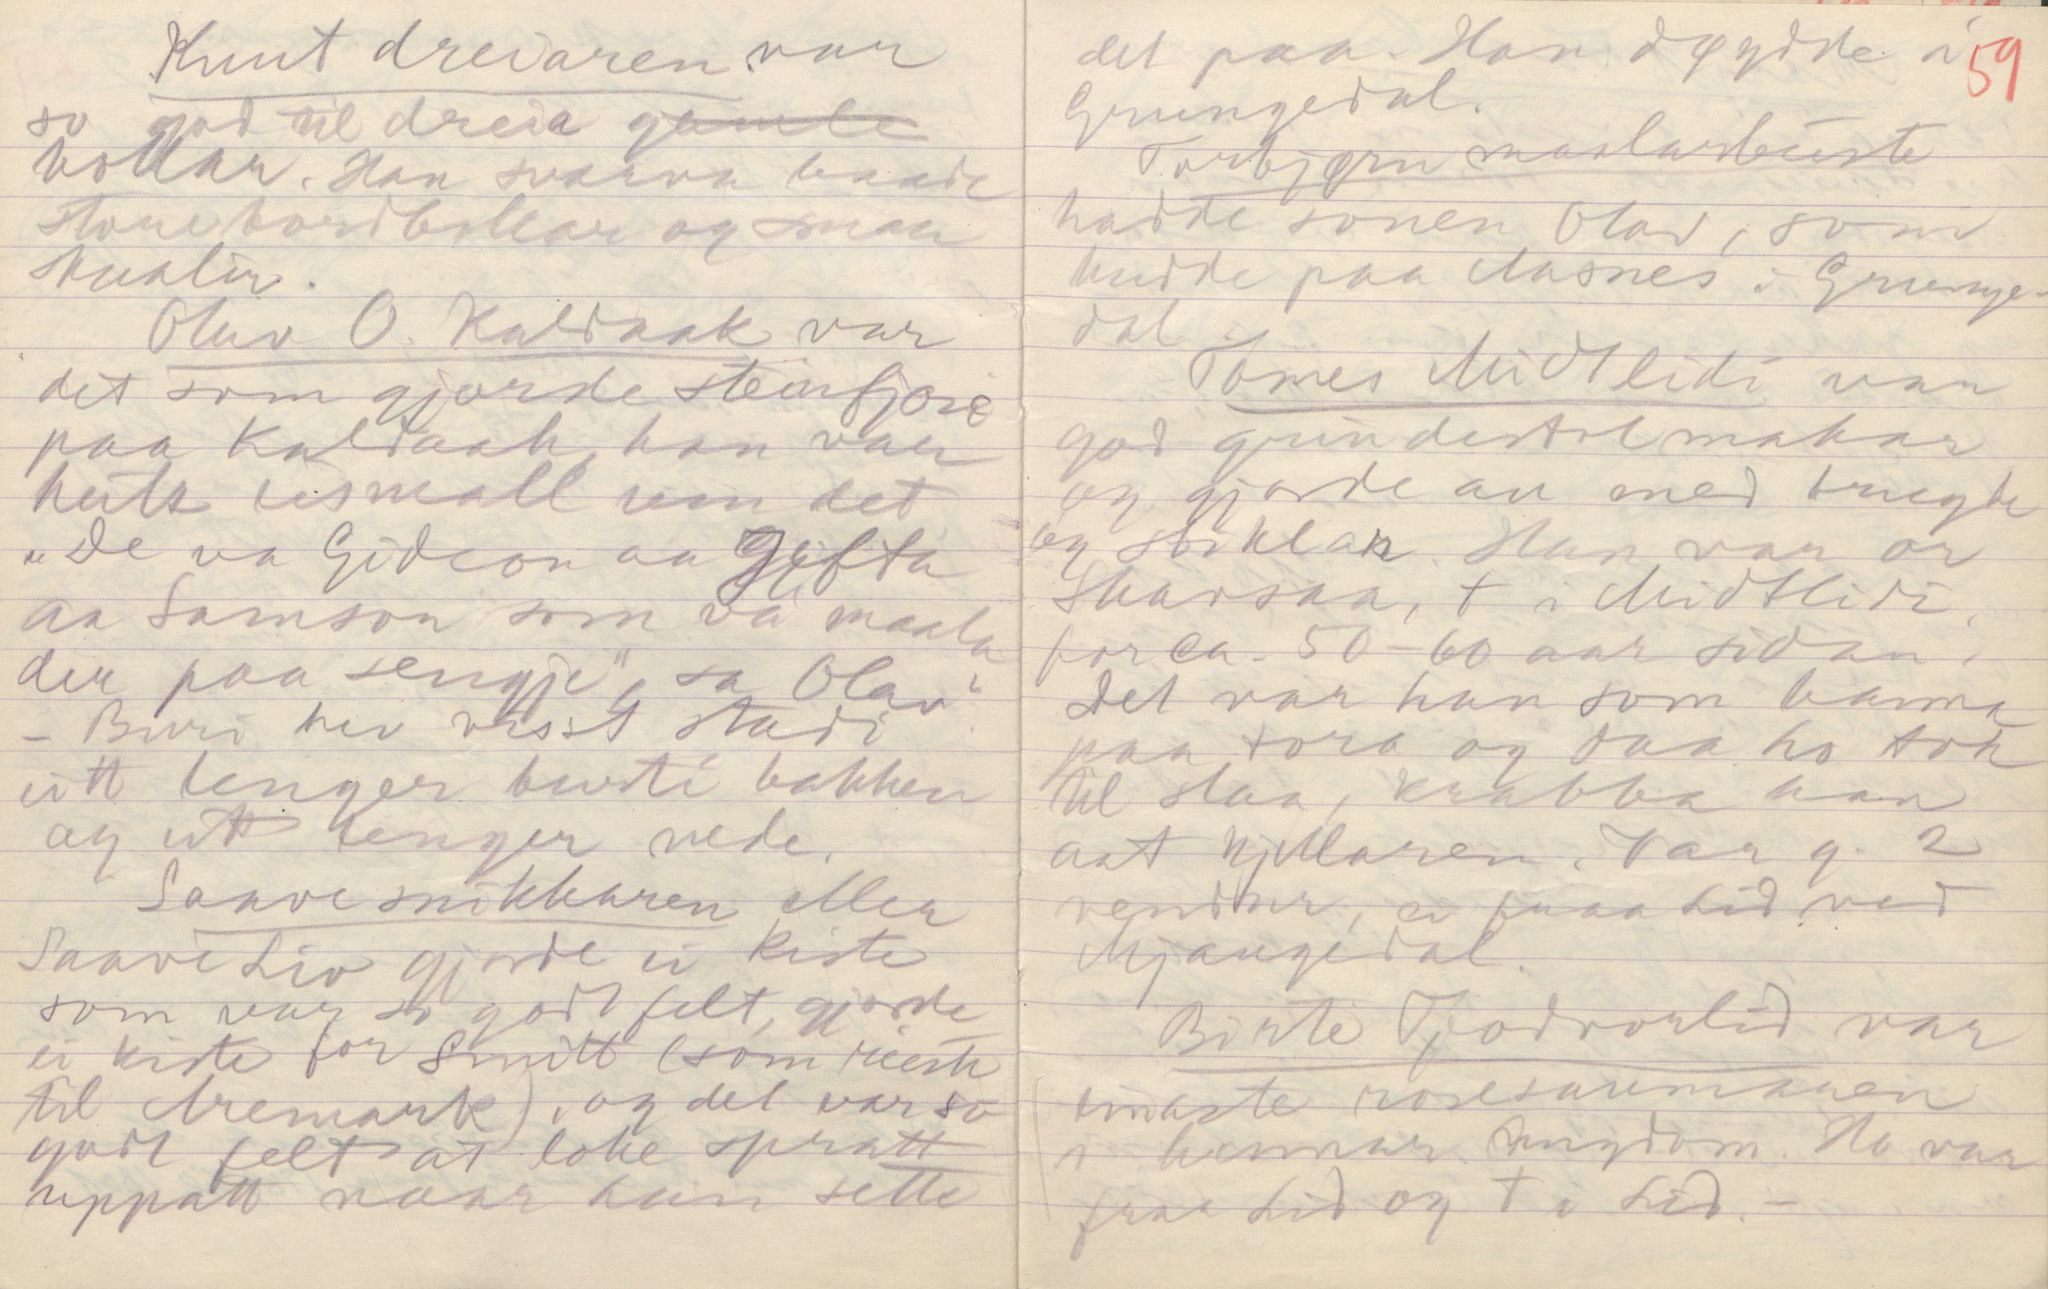 Knut dreiaren var
so god til dreia gamle
bollar. Han svarva baade
store bordbollar og smaa
skaalir.
Olav O. Kaldaak var
det som gjorde steinfjose
paa Kaldaak, han var
heilt um det
"De va Gideon aa Jefta
aa Samson som va maala
der paa sengje", sa Olav
- Buri hev visst stadi
itt lenger burti bakken
og itt lenger nede.
Saave snikkaren eller
Saave Liv gjorde ei kiste
som var so godt felt, gjorde
ei kiste for Smitt (som reiste
til Aremark), og det var so
godt felt at loke spratt
uppatt naar han sette
59
det paa. Han døydde i
Grungedal.
Torbjørn maalarbuste
hadde sonen Olav, som
budde paa Aasnes i Grunge-
dal.
Tomes Midtlidi var
god grindestolmakar
og gjorde au med brugde
og stiklar. Han var or
Skarsaa, † i Midtlidi,
for ca. 50-60 aar sidan.
Det var han som banna
paa tora og daa ho tok
til slaa, krabba han
aat kjellaren. Var g. 2
vendur, ei fraa Lid ved
Mjaugedal.
Birte Tjodvorlid var
finaste rosesaumaren
i hennar ungdom. Ho var
fraa Lid og † i Lid. -